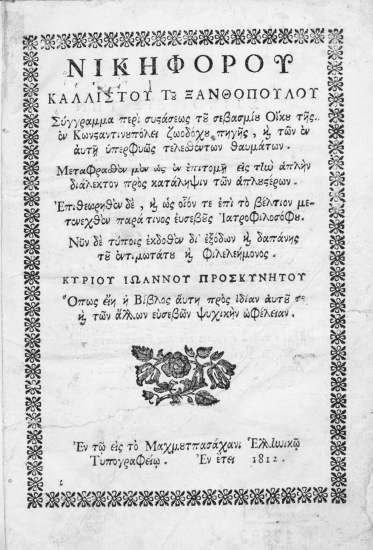 ΝΙΚΗΦΟΡΟΥ
ΚΑΛΛΙΣΤΟΥ Τȣ ΞΑΝΘΟΠΟΥΛΟΥ
Σύγγραμμα περὶ συϛάσεως τȣ̃ σεβασμίȣ Οἴκȣ τῆς
ἐν Κωνϛαντινȣπόλει ζωοδόχȣ πηγῆς, ϗ τῶν ἐν
αὐτῇ ὑπερφυῶς τελεσθέντων θαυμάτων.
Μεταφρασθὲν μὲν ὡς ἐν ἐπιτομῇ εἰς τὴν ἁπλῆν
διάλεκτον πρὸς κατάληψιν τῶν ἁπλȣϛέρων.
Ἐπιθεωρηθὲν δὲ, ϗ ὡς οἷόν τε ἐπὶ τὸ βέλτιον με-
τενεχθὲν παρά τινος εὐσεβȣ̃ς Ἰατροφιλοσόφȣ.
Νῦν δὲ τύποις ἐκδοθὲν δι' ἐξόδων ϗ δαπάνης
τȣ̃ ἐντιμωτάτȣ ϗ Φιλελεήμονος.
ΚΥΡΙΟΥ ΙΩΑΝΝΟΥ ΠΡΟΣΚΥΝΗΤΟΥ
Ὅπως εἴη ἡ Βίβλος αὕτη πρὸς ἰδίαν αὐτȣ̃ τε
ϗ τῶν ἄλλων εὐσεβῶν ψυχικὴν ὠφέλειαν.
Ἐν τῷ εἰς τὸ Μαχμετπασάχανι Ἑλληνικῷ
Τυπογραφείῳ. Ἐν ἔτει 1812.